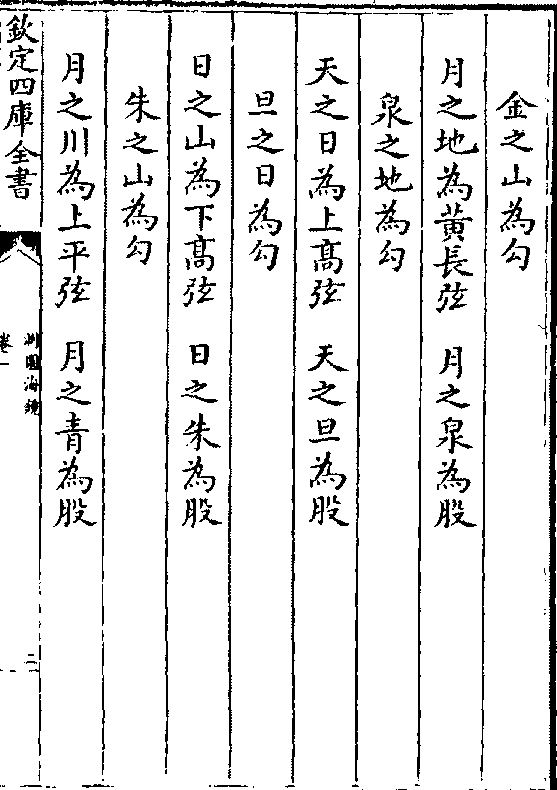 金之山為勾
月之地為黃長弦　月之泉為股
泉之地為勾
天之日為上高弦　天之旦為股
旦之日為勾
日之山為下高弦　日之朱為股
朱之山為勾
月之川為上平弦　月之青為股
欽定四庫全書
測圓海鏡
卷一
二